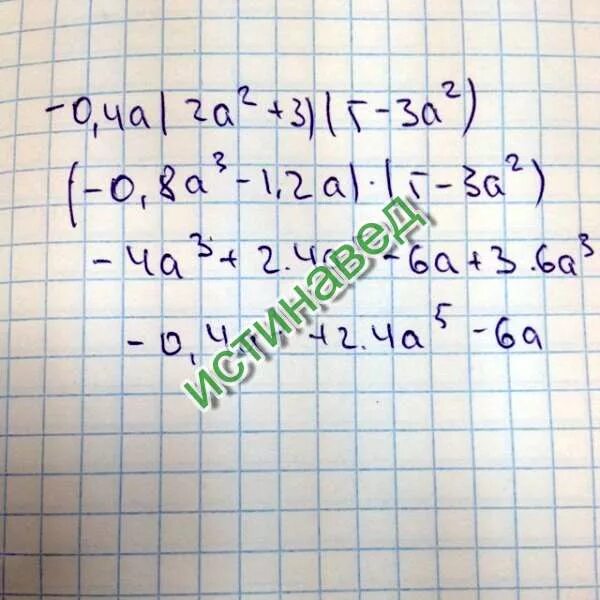 -0,4a(2a² +3)(5-3a²)
(-0,8a³ -1,2a)·(5-3a²)
-4a³+ 2.4a -6a+3.6a³
-0,4a +2.4a⁵ -6a
ИСТИНАВЕД